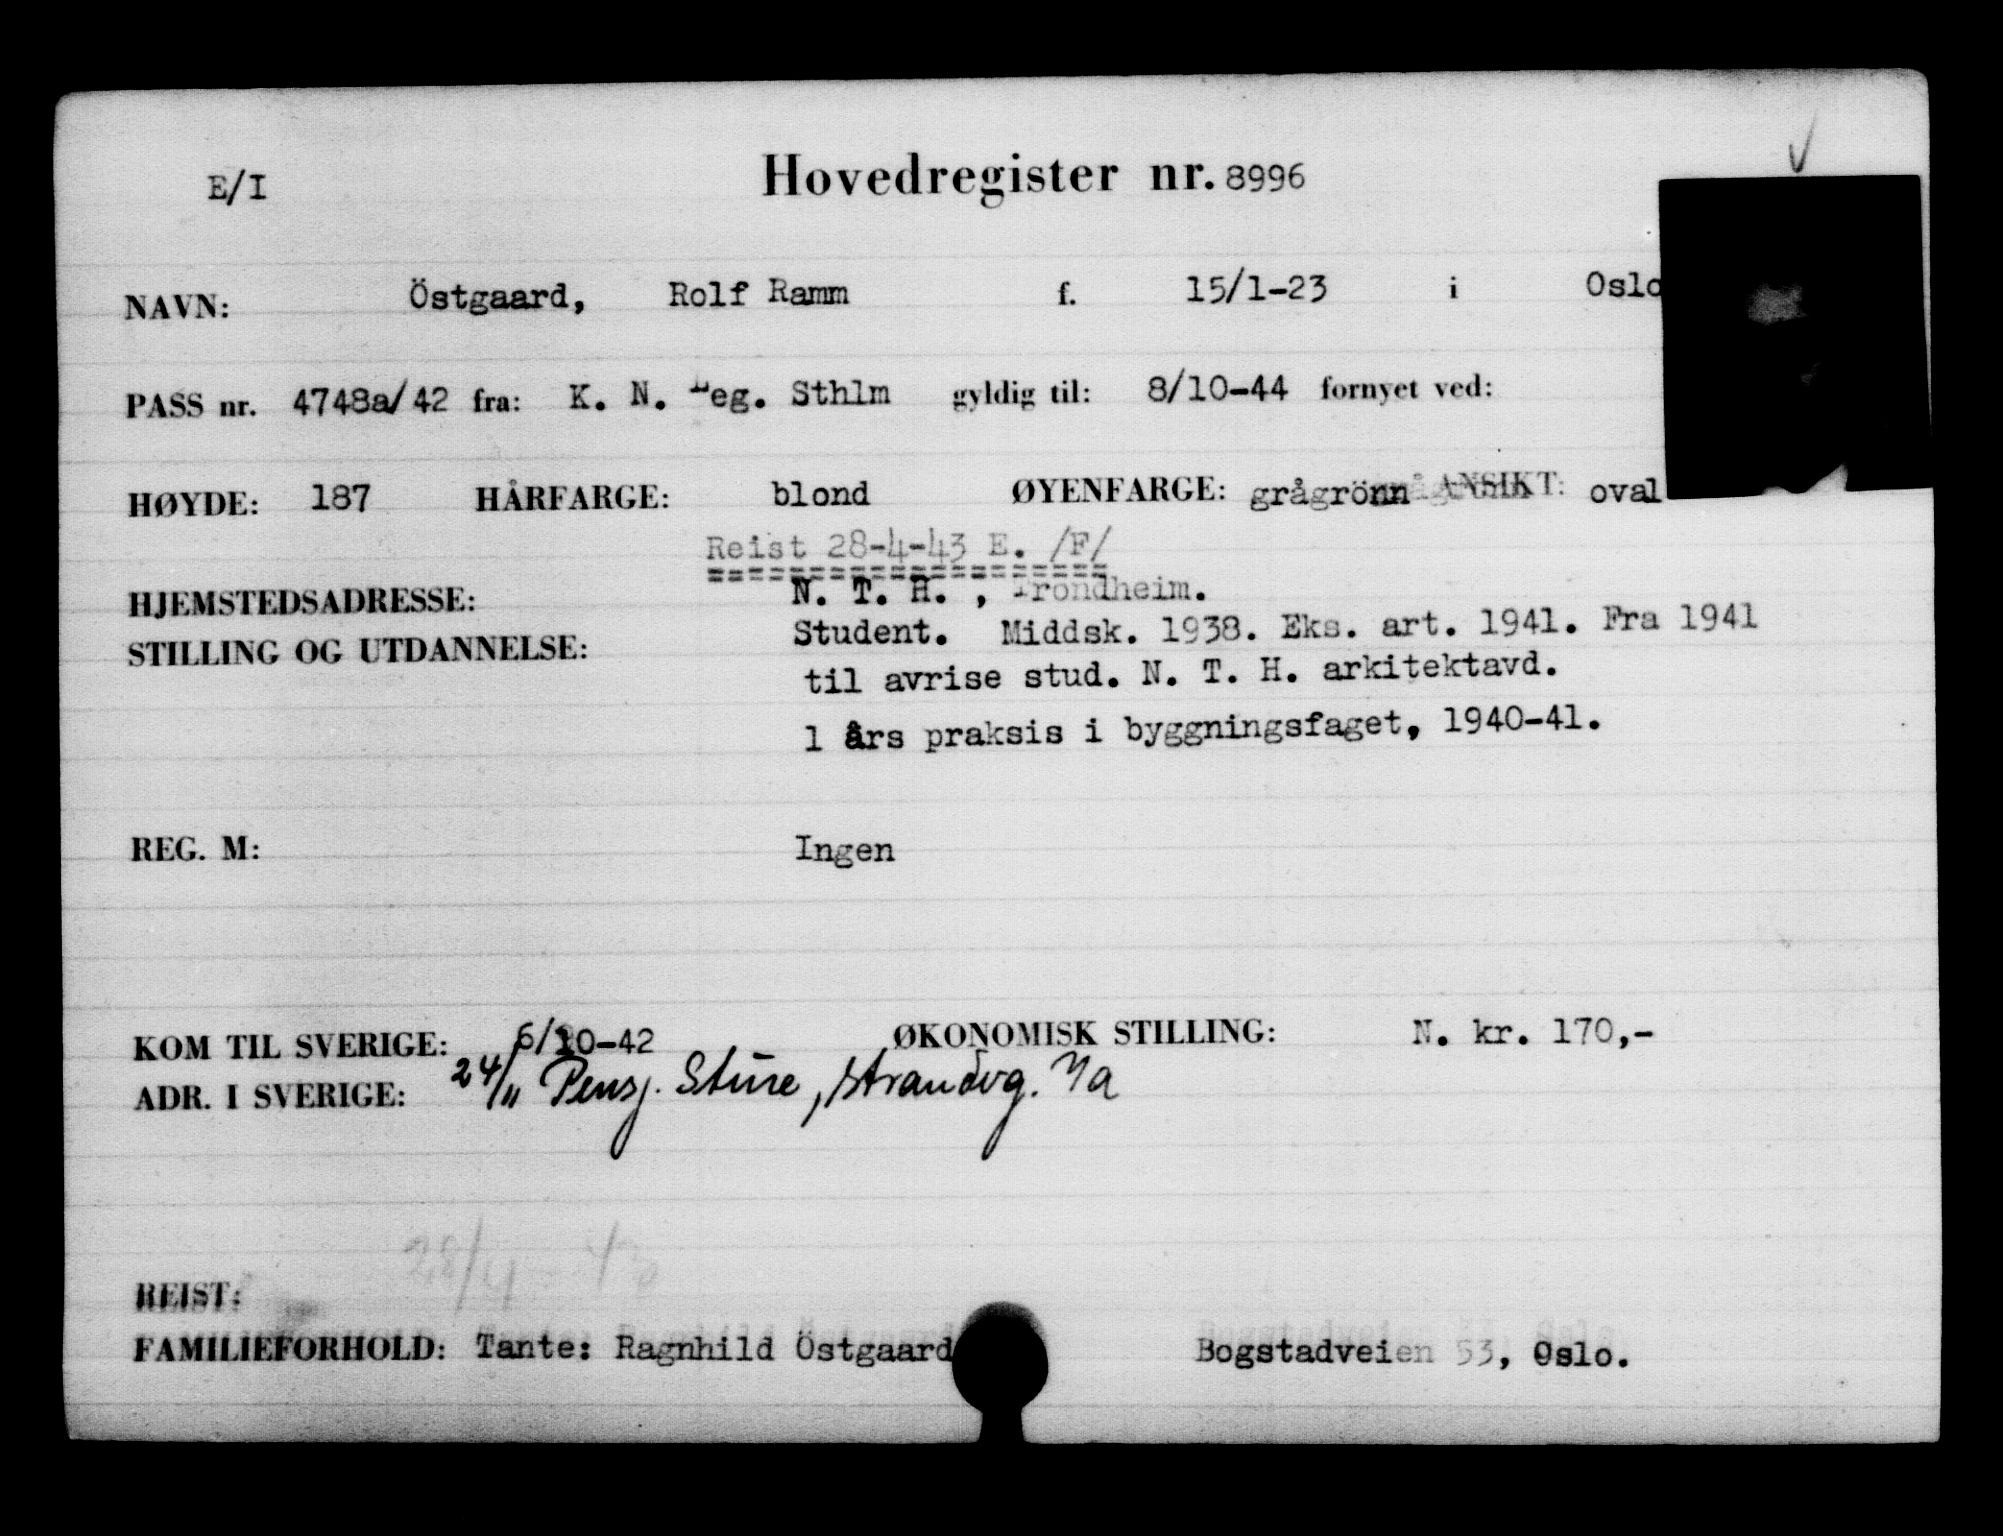 E/I Hovedregister nr. 8996
NAVN: Östgaard, Rolf Ramm f. 15/1-23 i Oslo
PASS nr. 4748a/42 fra: K. N. Leg. Sthlm gyldig til: 8/10-44 fornyet ved:
HØYDE: 187 HÅRFARGE: blond ØYENFARGE: grågrönn ANSIKT: oval
Reist 28-4-43 E. /F/
HJEMSTEDSADRESSE: N. T. H. , Trondheim.
STILLING OG UTDANNELSE: Student. Middsk. 1938. Eks. art. 1941. Fra 1941
til avrise stud. N. T. H. arkitektavd.
1 års praksis i byggningsfaget, 1940-41.
REG. M: Ingen
KOM TIL SVERIGE: 6/10-42 ØKONOMISK STILLING: N. kr. 170,-
ADR. I SVERIGE: 24/11 Pensj. Sture, Strandvg. 7a
28/4-43
REIST:
FAMILIEFORHOLD: Tante: Ragnhild Östgaard Bogstadveien 53, Oslo.